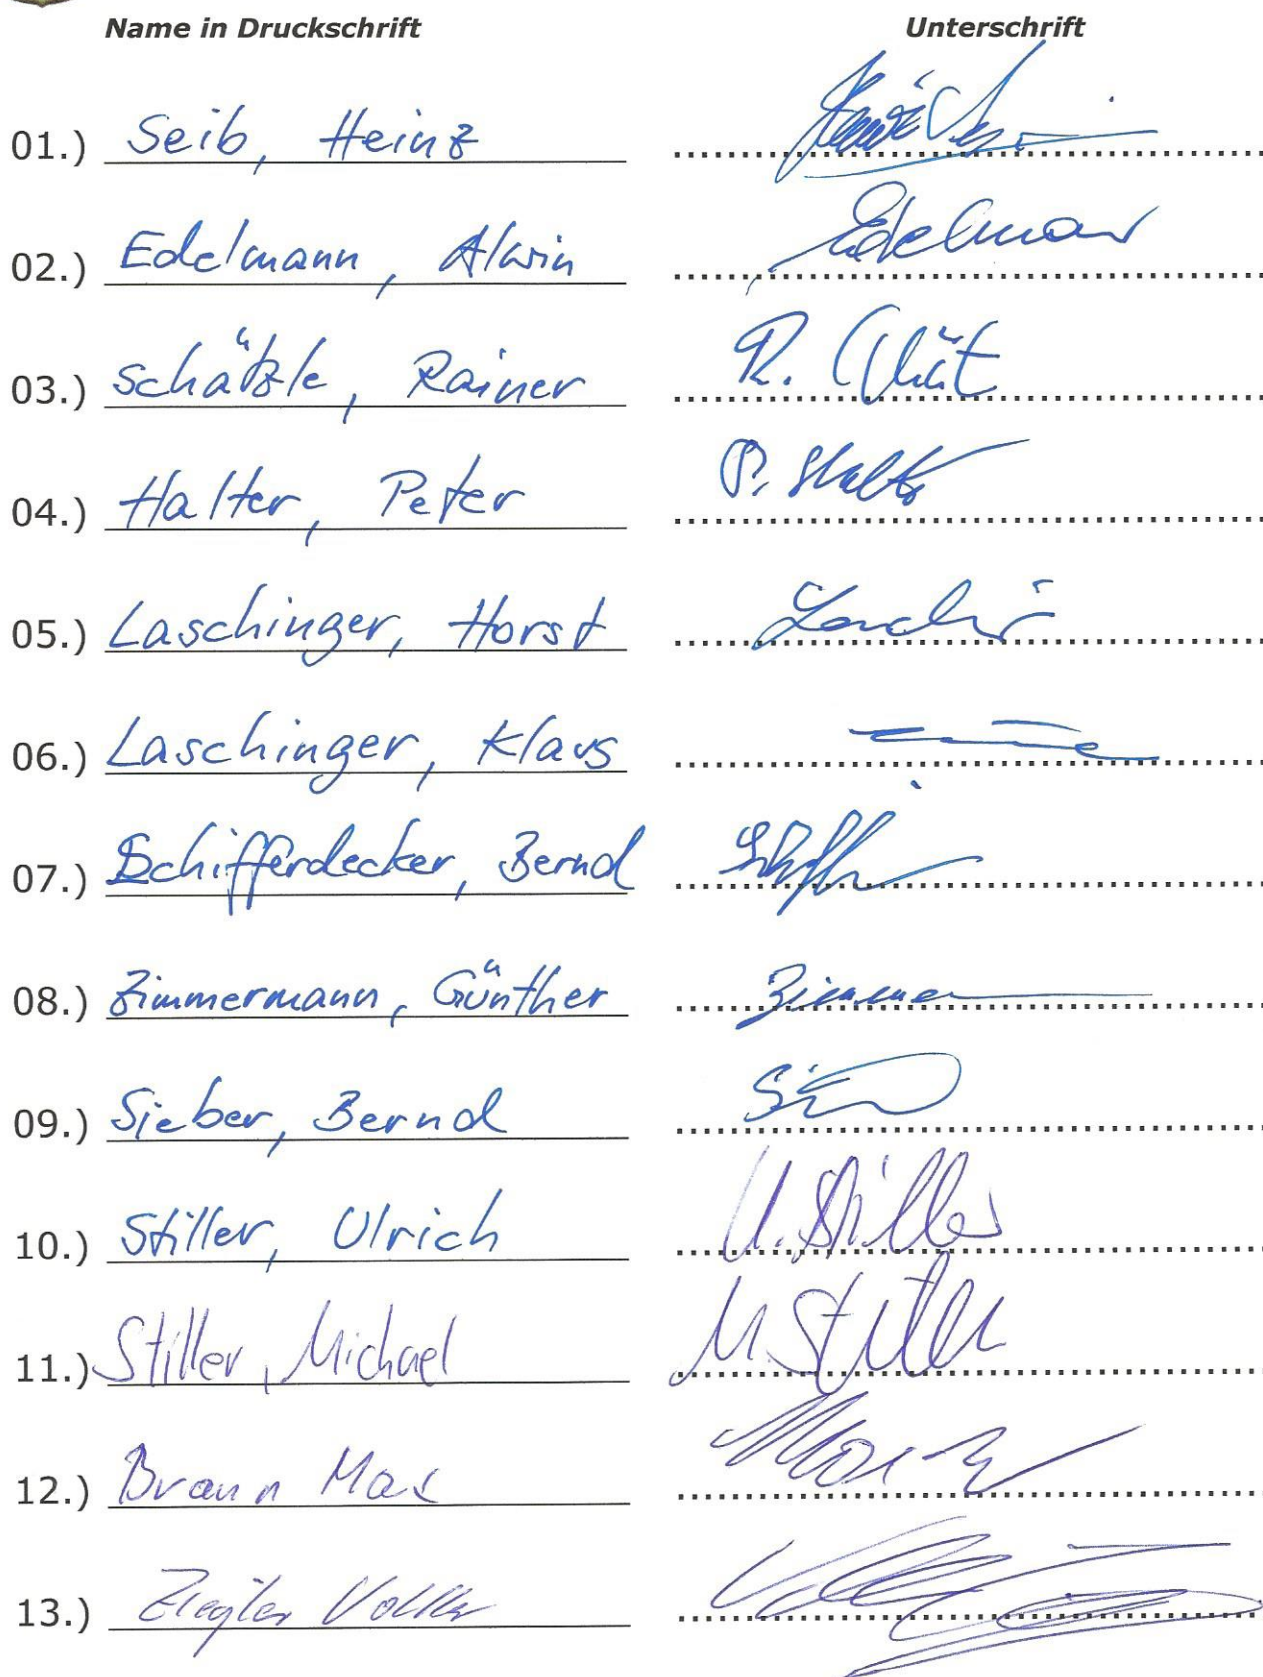 Name in Druckschrift Unterschrift
01.) Seib, Heinz
02.) Edelmann, Alwin Edelmann
03.) Schätzle, Rainer R.
04.) Halter, Peter P. Halter
05.) Laschinger, Horst
06.) Laschinger, Klaus
07.) Schifferdecker, Bernd
08.) Zimmermann, Günther
09.) Sieber, Bernd
10.) Stiller, Ulrich U. Stiller
11.) Stiller, Michael M Stiller
12.) Braun Max
13.) Ziegler Volker